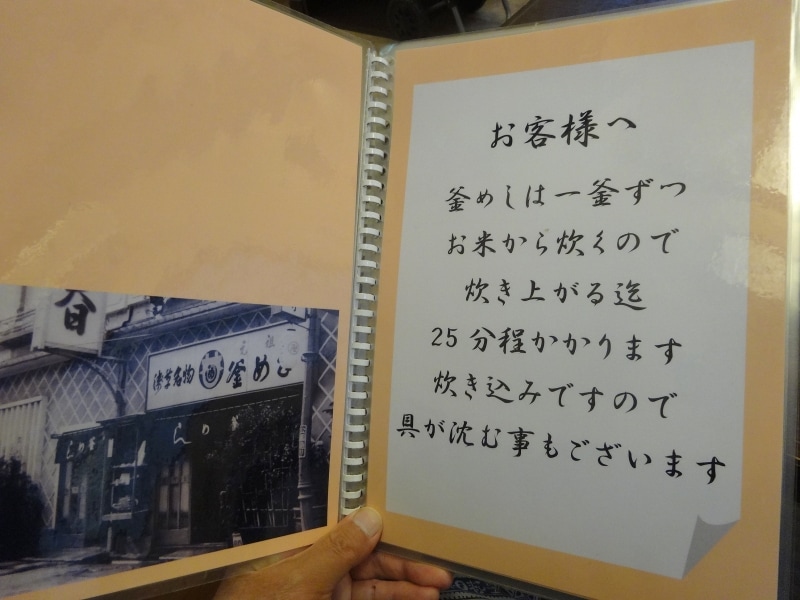 春
元祖
浅草名物 釜めし
お客様へ
釜めしは一釜ずつ
お米から炊くので
炊き上がる迄
25分程かかります
炊き込みですので
具が沈む事もございます